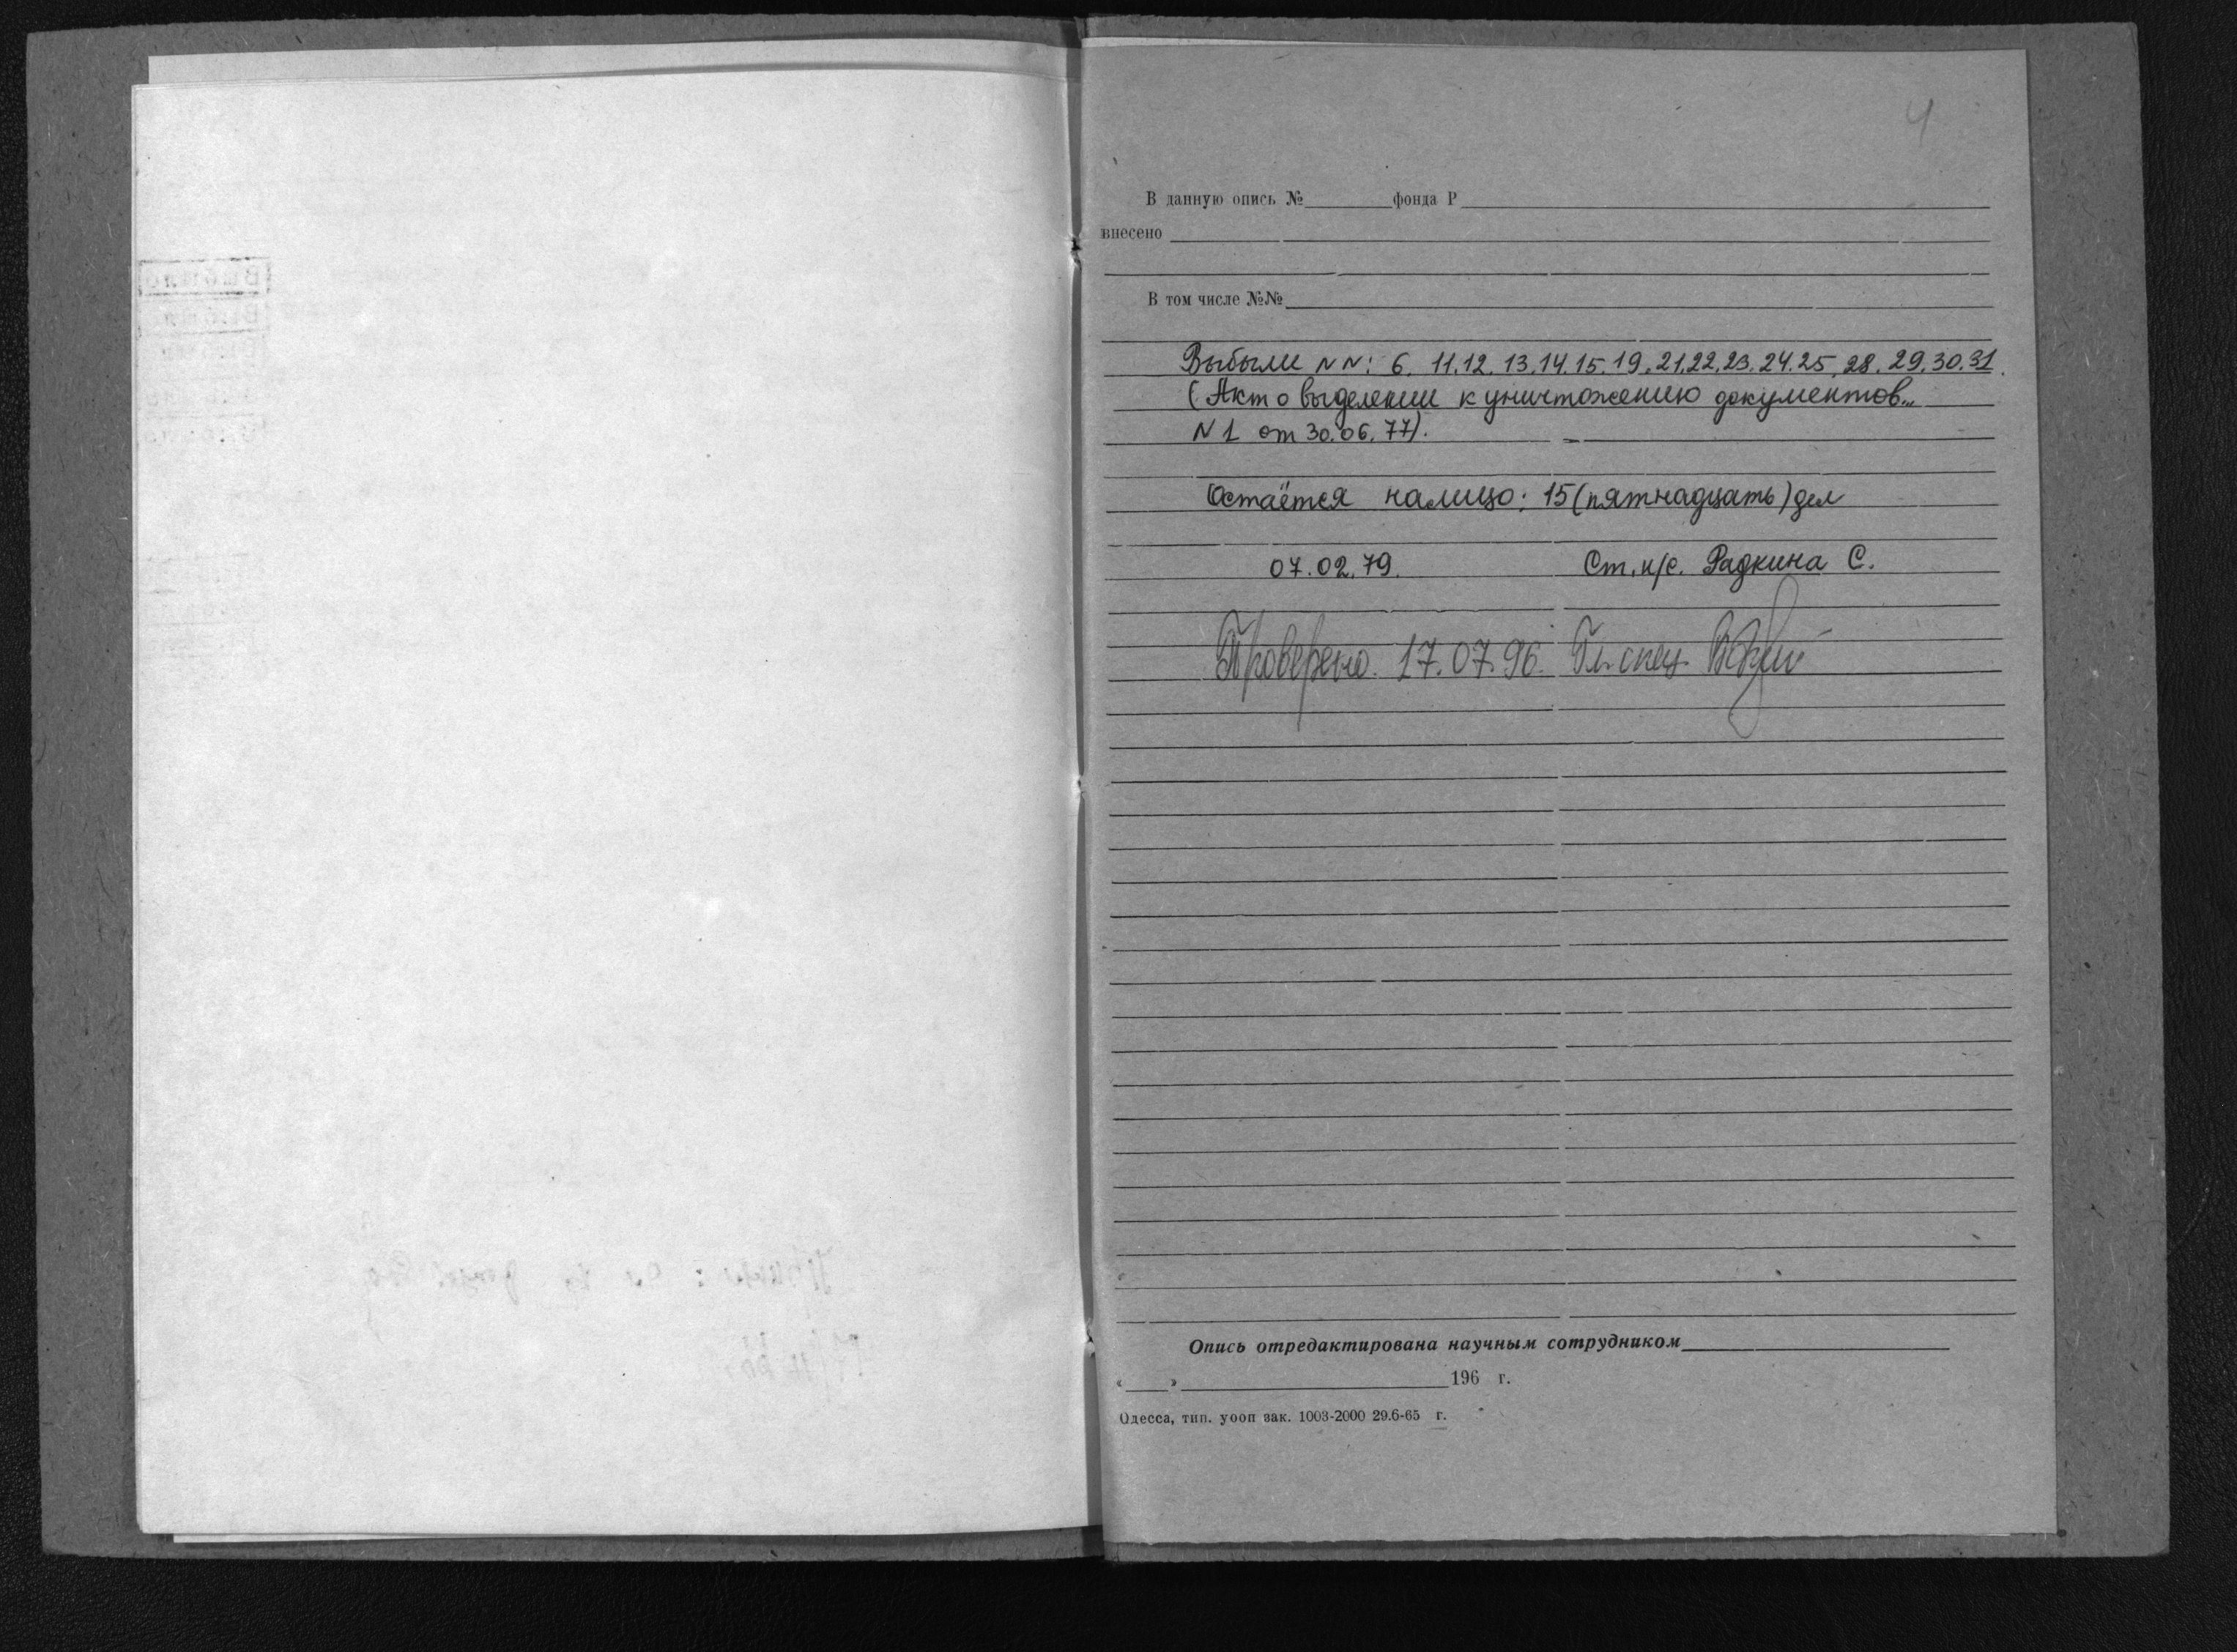 4
В данную опись № фонда Р
внесено
В том числе №№
Выбыли NN: 6. 11.12. 13.14.15.19.21.22.23.24.25.28.29.30.31.
(Акт о выделении к уничтожению документов...
N 1 от 30.06.77).
Остаётся налицо: 15 (пятнадцать) дел
07.02.79. Ст. н/с. Радкина С.
Проверено. 17.07.96. Гл. спец.
Опись отредактирована научным сотрудником
« » 196 г.
Одесса, тип. уооп зак. 1003-2000 29.6-65 г.